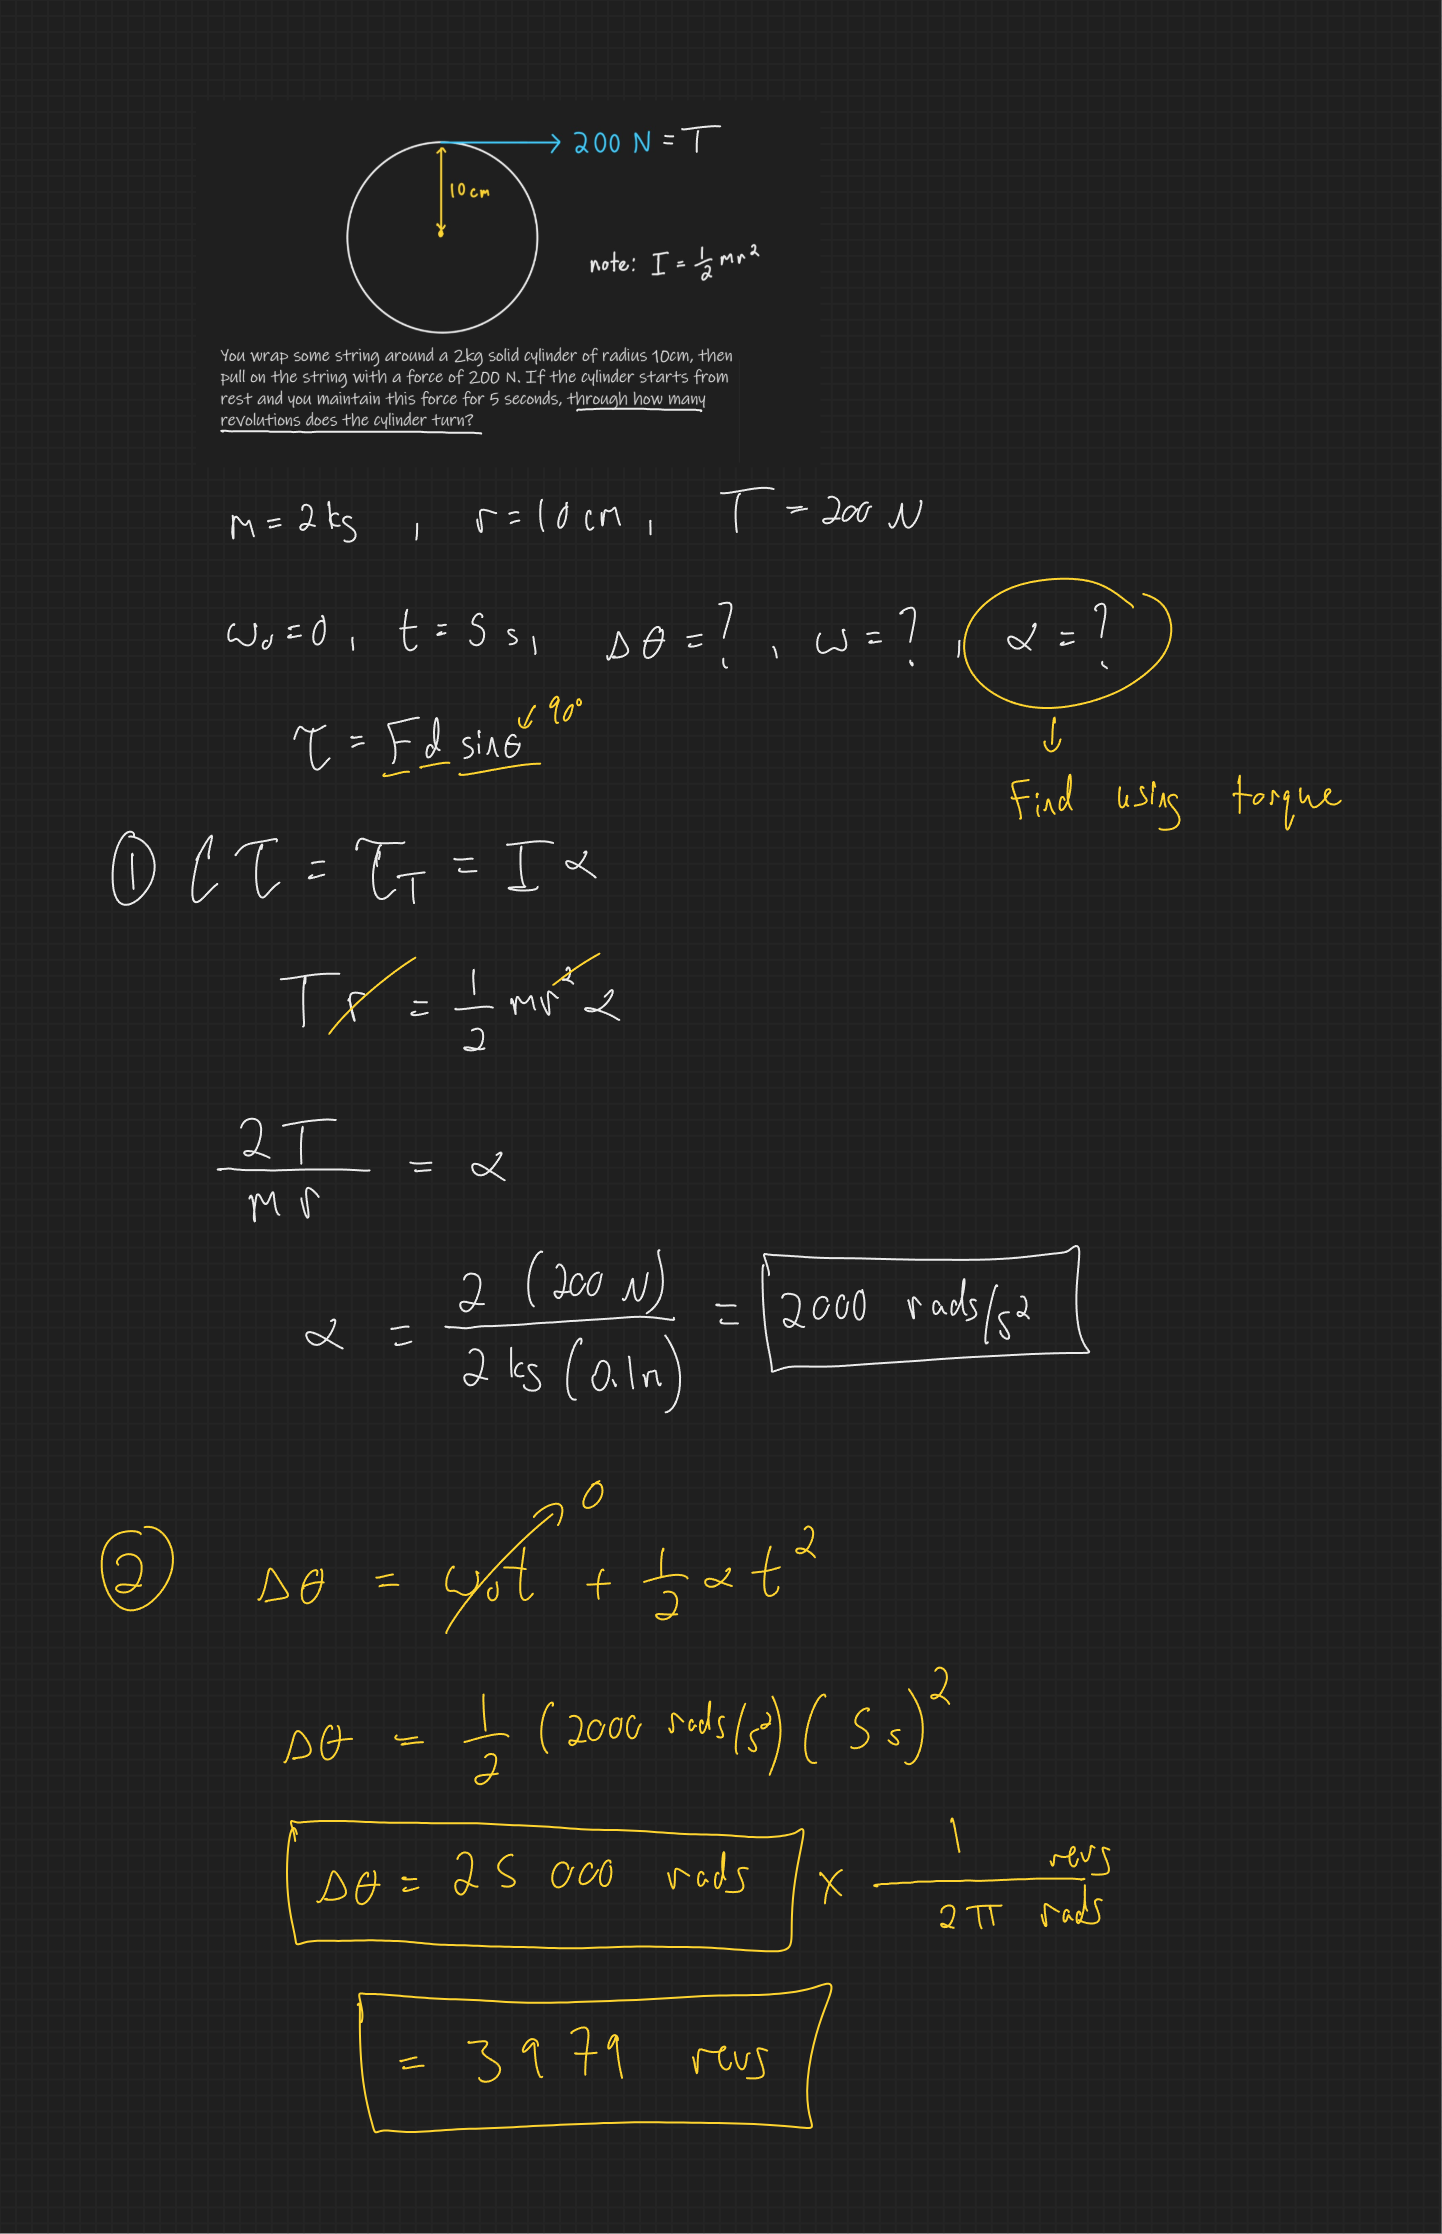 200 N = T
10 cm
note: I = 1/2 mr²
You wrap some string around a 2kg solid cylinder of radius 10cm, then
pull on the string with a force of 200 N. If the cylinder starts from
rest and you maintain this force for 5 seconds, through how many
revolutions does the cylinder turn?
m = 2 kg , r = 10 cm , T = 200 N
ω₀ = 0 , t = 5 s , Δθ = ? , ω = ? , α = ?
τ = Fd sinθ ↙ 90°
↓
Find using torque
① Στ = τ_T = Iα
Tr = 1/2 mr² α
2T / mr = α
α = 2 (200 N) / 2 kg (0.1m) = 2000 rads/s²
② Δθ = ω₀t → 0 + 1/2 α t²
Δθ = 1/2 (2000 rads/s²) (5 s)²
Δθ = 25 000 rads × 1 revs / 2π rads
= 3979 revs